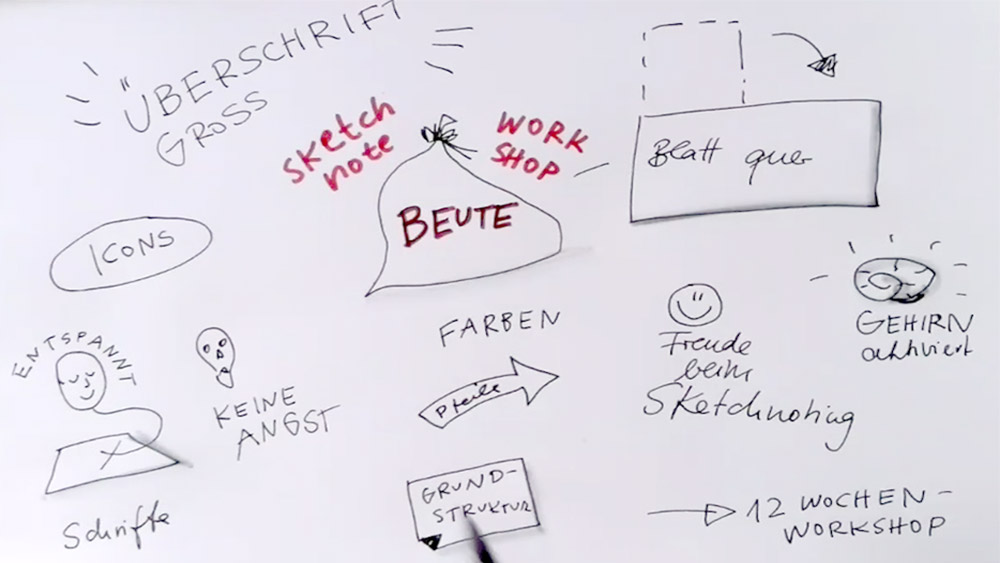 ÜBERSCHRIFT
GROSS
Sketch
note
WORK
SHOP
BEUTE
Blatt quer
ICONS
ENTSPANNT
KEINE
ANGST
Schrifte
FARBEN
Pfeile
GRUND-
STRUKTUR
Freude
beim
Sketchnoting
GEHIRN
aktiviert
12 WOCHEN-
WORKSHOP